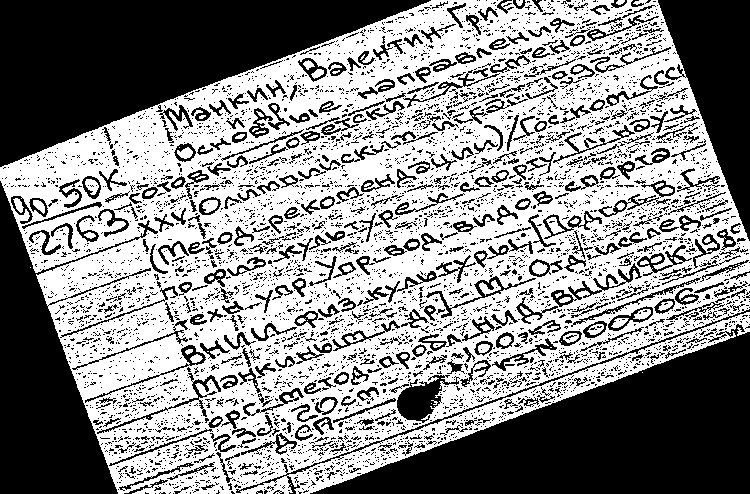 Манкин, Валентин Григор
и др.
Основные направления под
90-50К
готовки советских яхтсменов к
2763
XXV Олимпийским играм 1996 г.
(Метод. рекомендации) / Гос. ком. СССР
по физ. культуре и спорту, Гл. науч.
техн. упр., Упр. вод. видов спорта,
ВНИИ физ. культуры; [Подгот. В.Г.
Манкиным и др.] - М.: Отд. исслед.,
орг. метод. пробл. НИД ВНИИФК, 1989
23с.; 20см. - 100 экз.
ДСП. Экз. N 000006.